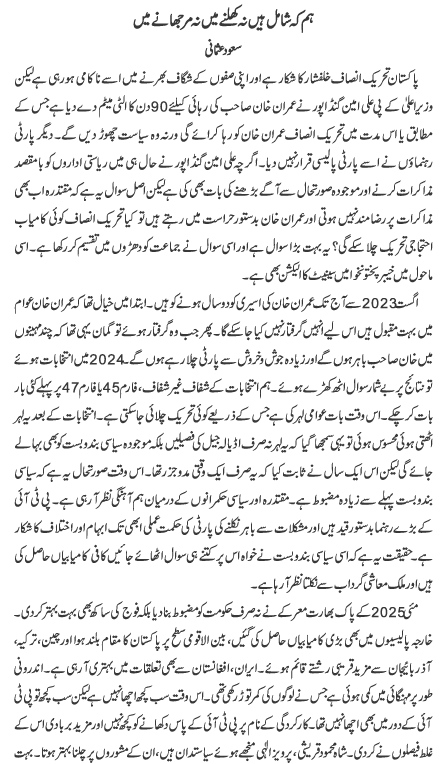 ہم کہ شامل ہیں نہ کھلنے میں نہ مرجھانے میں
سعود عثمانی
پاکستان تحریک انصاف خلفشار کا شکار ہے اور اپنی صفوں کے شگاف بھرنے میں اسے ناکامی ہو رہی ہے لیکن
وزیراعلیٰ کے پی علی امین گنڈاپور نے عمران خان صاحب کی رہائی کیلئے 90 دن کا الٹی میٹم دے دیا ہے جس کے
مطابق یا اس مدت میں تحریک انصاف عمران خان کو رہا کرائے گی ورنہ وہ سیاست چھوڑ دیں گے۔ دیگر پارٹی
رہنماؤں نے اسے پارٹی پالیسی قرار نہیں دیا۔ اگرچہ علی امین گنڈاپور نے حال ہی میں ریاستی اداروں کو بامقصد
مذاکرات کرنے اور موجودہ صورتحال سے آگے بڑھنے کی بات بھی کی ہے لیکن اصل سوال یہ ہے کہ مقتدرہ اب بھی
مذاکرات پر رضامند نہیں ہوتی اور عمران خان بدستور حراست میں رہتے ہیں تو کیا تحریک انصاف کوئی کامیاب
احتجاجی تحریک چلا سکے گی؟ یہ بہت بڑا سوال ہے اور اسی سوال نے جماعت کو دھڑوں میں تقسیم کر رکھا ہے۔ اسی
ماحول میں خیبر پختونخوا میں سینیٹ کا الیکشن بھی ہے۔
اگست 2023 سے آج تک عمران خان کی اسیری کو دو سال ہونے کو ہیں۔ ابتدا میں خیال تھا کہ عمران خان عوام
میں بہت مقبول ہیں اس لیے انہیں گرفتار نہیں کیا جا سکے گا۔ پھر جب وہ گرفتار ہوئے تو گمان یہی تھا کہ چند مہینوں
میں خان صاحب باہر ہوں گے اور زیادہ جوش و خروش سے پارٹی چلا رہے ہوں گے۔ 2024 میں انتخابات ہوئے
تو نتائج پر بے شمار سوال اٹھ کھڑے ہوئے۔ ہم انتخابات کے شفاف غیر شفاف، فارم 45 یا فارم 47 پر پہلے کئی بار
بات کر چکے۔ اس وقت بات عوامی لہر کی ہے جس کے ذریعے کوئی تحریک چلائی جا سکتی ہے۔ انتخابات کے بعد یہ لہر
اٹھتے ہوئی محسوس ہوئی تو یہی سمجھا گیا کہ یہ لہر نہ صرف اڈیالہ جیل کی فصیلیں بلکہ موجودہ سیاسی بندوبست کو بھی بہا لے
جائے گی لیکن اس ایک سال نے ثابت کیا کہ یہ صرف ایک وقتی مدوجزر تھا۔ اس وقت صورتحال یہ ہے کہ سیاسی
بندوبست پہلے سے زیادہ مضبوط ہے۔ مقتدرہ اور سیاسی حکمرانوں کے درمیان ہم آہنگی نظر آ رہی ہے۔ پی ٹی آئی
کے بڑے رہنما بدستور قید ہیں اور مشکلات سے باہر نکلنے کی پارٹی کی حکمت عملی ابھی تک ابہام اور اختلاف کا شکار
ہے۔ حقیقت یہ ہے کہ اسی سیاسی بندوبست نے خواہ اس پر کتنے ہی سوال اٹھائے جائیں کافی کامیابیاں حاصل کی
ہیں اور ملک معاشی گرداب سے نکلتا نظر آ رہا ہے۔
مئی 2025 کے پاک بھارت معرکے نے نہ صرف حکومت کو مضبوط بنا دیا بلکہ فوج کی ساکھ بھی بہت بہتر کر دی۔
خارجہ پالیسیوں میں بھی بڑی کامیابیاں حاصل کی گئیں، بین الاقوامی سطح پر پاکستان کا مقام بلند ہوا اور چین، ترکیہ،
آذربائیجان سے مزید قریبی رشتے قائم ہوئے۔ ایران، افغانستان سے بھی تعلقات میں بہتری آ رہی ہے۔ اندرونی
طور پر مہنگائی میں کمی ہوئی ہے جس نے لوگوں کی کمر توڑ رکھی تھی۔ اس وقت سب کچھ اچھا نہیں ہے لیکن سب کچھ تو پی ٹی
آئی کے دور میں بھی اچھا نہیں تھا۔ کارکردگی کے نام پر پی ٹی آئی کے پاس دکھانے کو کچھ نہیں اور مزید بربادی اس کے
غلط فیصلوں نے کر دی۔ شاہ محمود قریشی، پرویز الٰہی منجھے ہوئے سیاستدان ہیں، ان کے مشوروں پر چلنا بہتر ہوتا۔ بہت